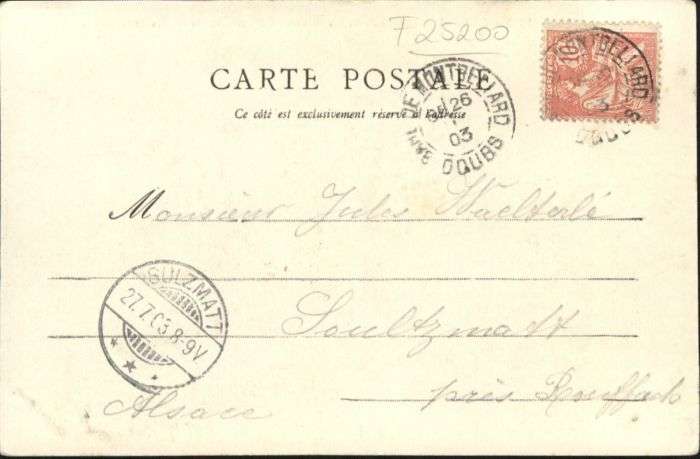 F25200
CARTE POSTALE
Ce côté est exclusivement réservé à l'adresse
GARE DE MONTBELIARD
26
03
DOUBS
10
MONTBELIARD
DOUBS
Monsieur Jules Waelterlé
SULZMATT
27.7.03.8-9V
Soultzmatt
près Rouffach
Alsace